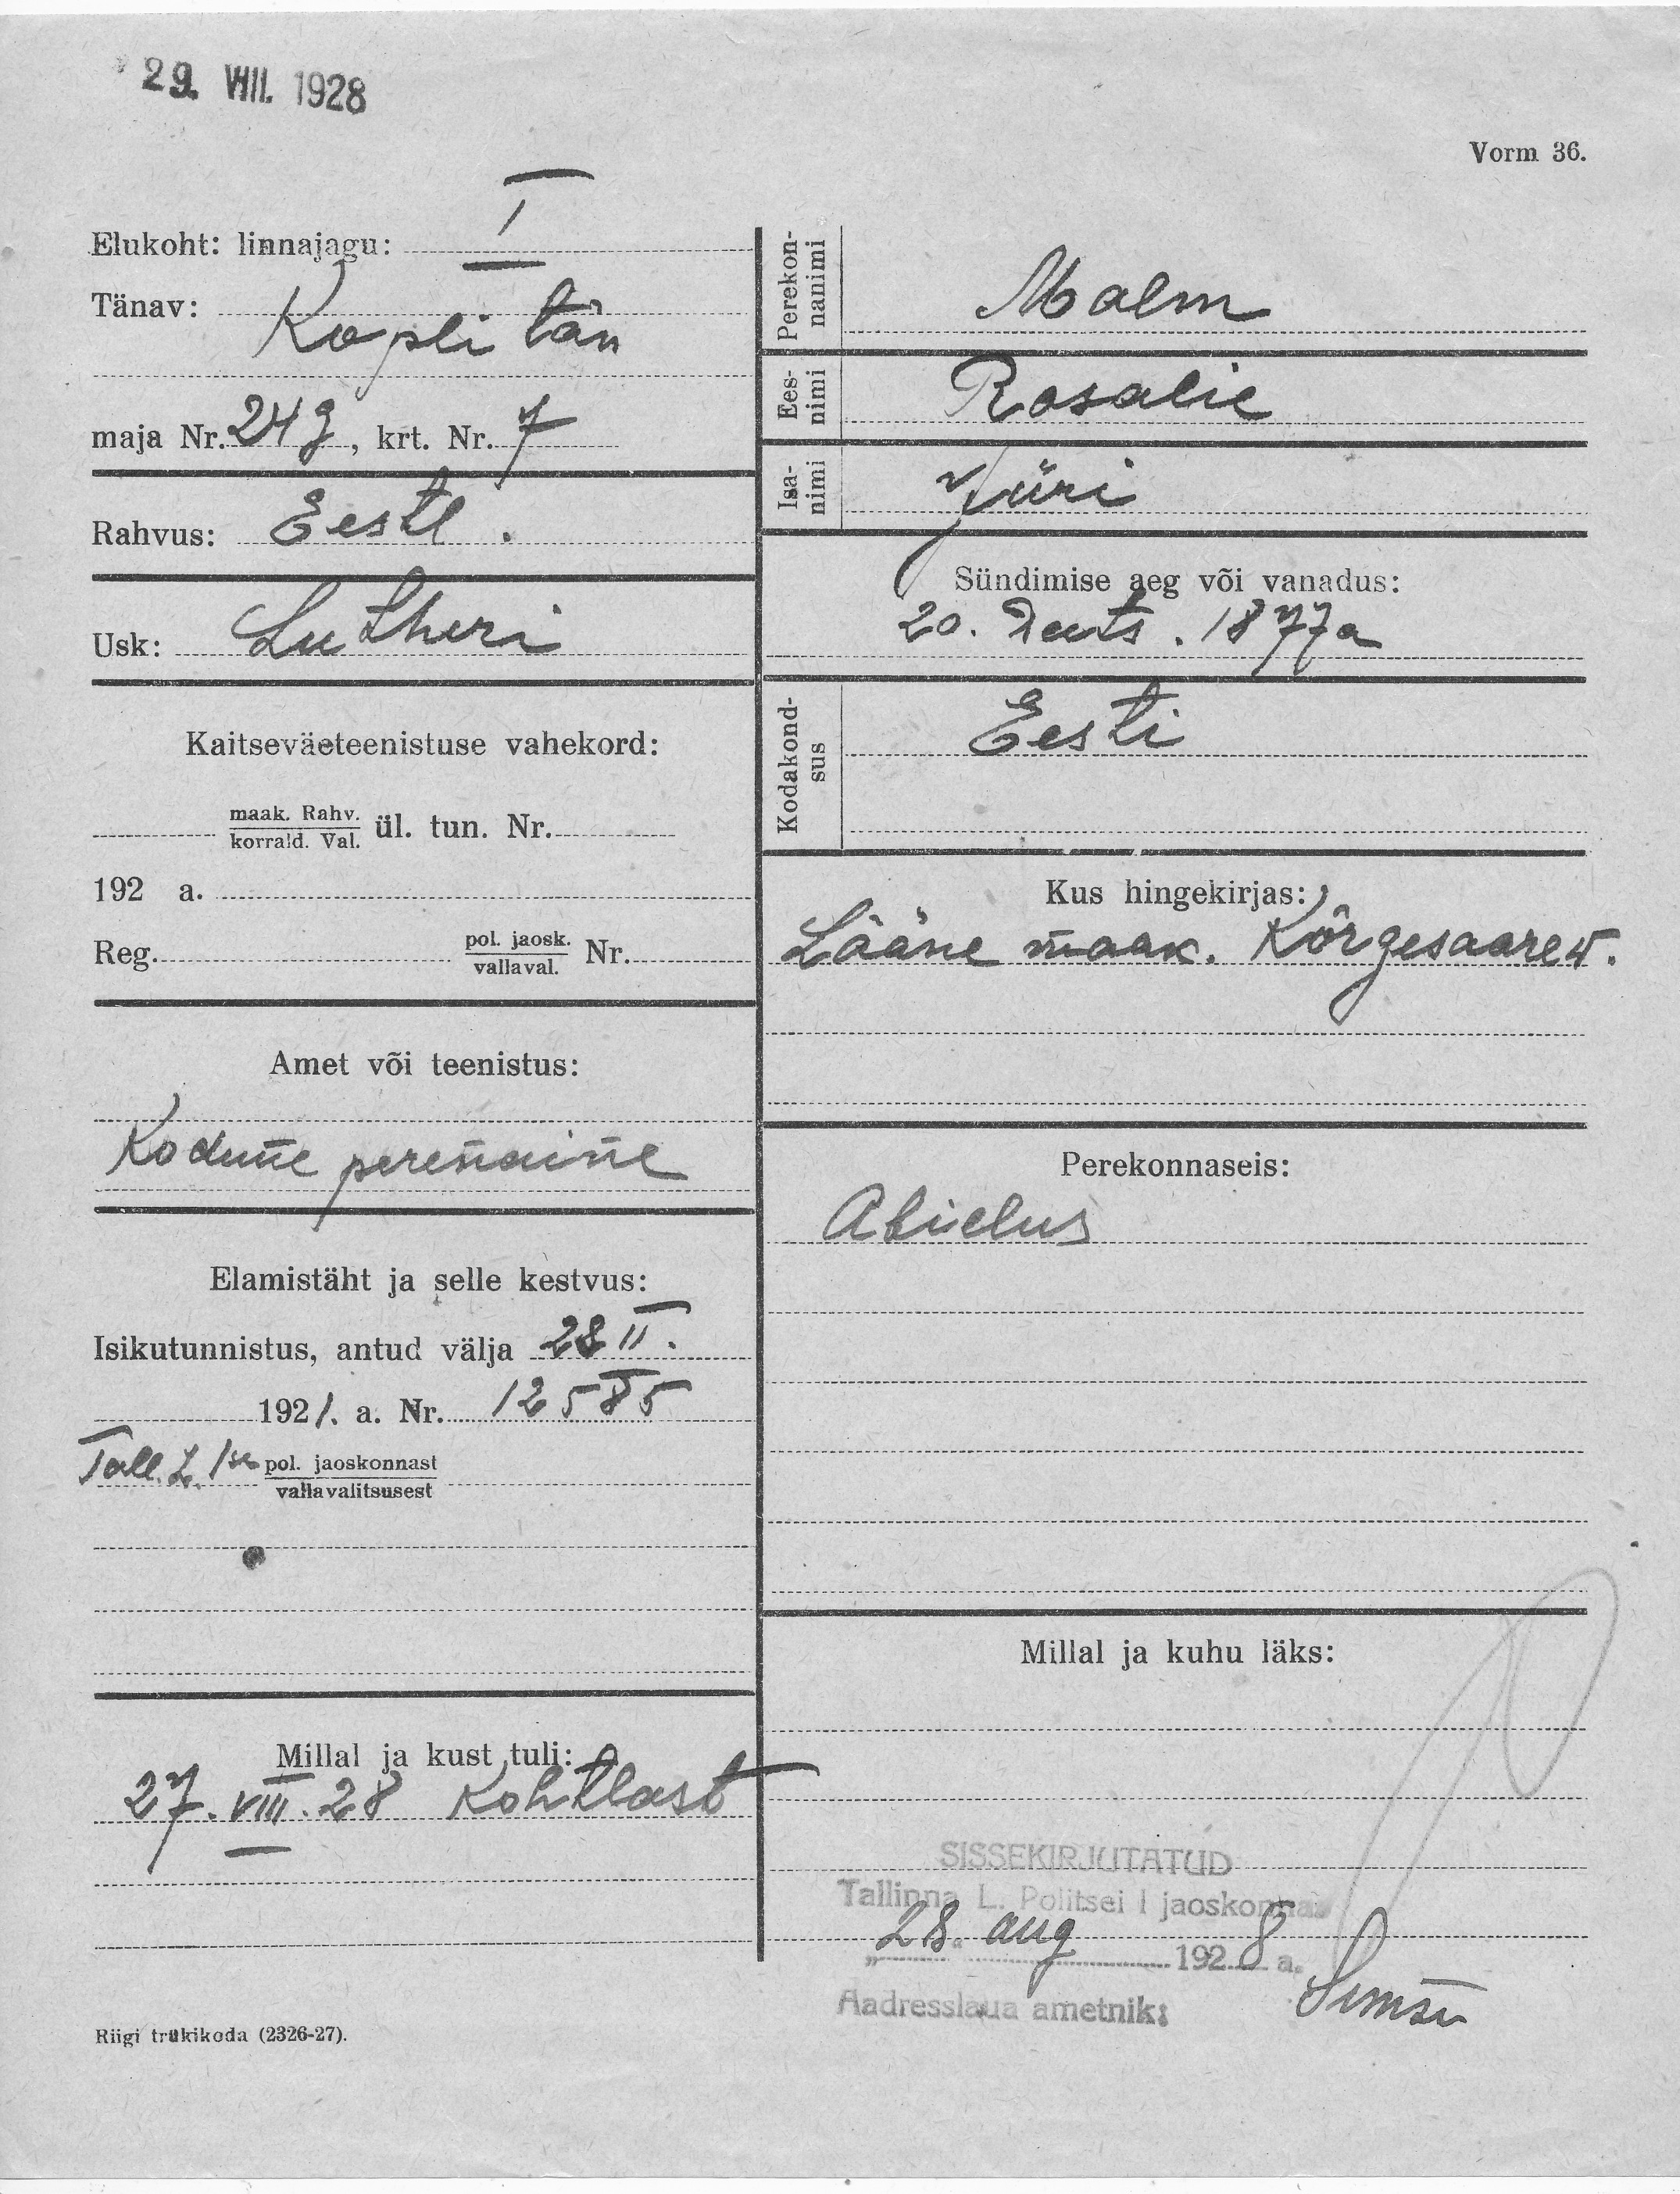 29. VIII. 1928
Vorm 36.
Elukoht: linnajagu: I
Tänav: Kopli tän
maja Nr. 24 g, krt. Nr. 7
Rahvus: Eestl.
Usk: Lutheri
Kaitseväeteenistuse vahekord:
maak. Rahv.
korrald. Val. ül. tun. Nr.
192 a.
Reg. pol. jaosk.
vallaval. Nr.
Amet või teenistus:
Kodune perenaine
Elamistäht ja selle kestvus:
Isikutunnistus, antud välja 28 II.
1921. a. Nr. 12585
Tall. L. 1se pol. jaoskonnast
vallavalitsusest
Millal ja kust tuli:
27. VIII. 28 Kohtlast
Riigi trükikoda (2326-27).
Perekon-
nanimi Malm
Ees-
nimi Rosalie
Isa-
nimi Jüri
Sündimise aeg või vanadus:
20. Deets. 1877 a
Kodakond-
sus Eesti
Kus hingekirjas:
Lääne maak. Kõrgesaare w.
Perekonnaseis:
Abielus
Millal ja kuhu läks:
SISSEKIRJUTATUD
Tallinna L. Politsei I jaoskonnas
„28." aug 1928 a.
Aadresslaua ametnik: